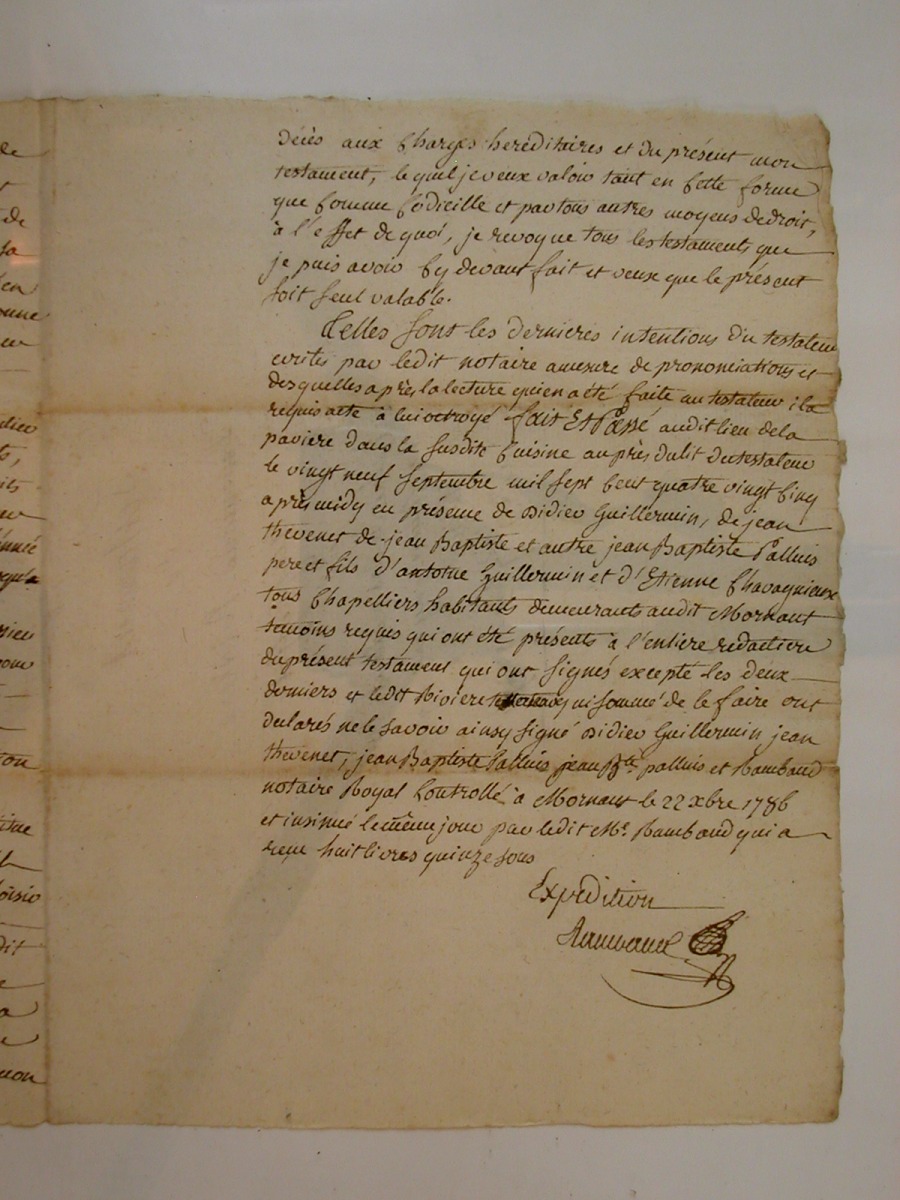 décès aux Charges hereditaires et du présent mon
testament, le quil je veux valoir tant en Cette forme
que Comme Codicille et par tous autres moyens de droit,
à l'effet de quoi, je revoque tous les testaments que
je puis avoir Cy devant fait et veux que le présent
soit seul valable.
Telles sont les dernieres intentions du testateur
ecrites par ledit notaire amesure de prononciations et
desquelles après la lecture qui en a été faite au testateur il a
requis acte à lui octroyé fait Et Passé audit lieu de la
paviere dans la susdite Cuisine au près du lit du testateur
le vingt neuf septembre mil sept Cent quatre vingt Cinq
après midy en présence de Didier Guillermin, de jean
thevenet de jean Baptiste et autre jean Baptiste Palluis
pere et fils d'antoine Guillermin et d'Etienne Chavagnieux
tous Chapelliers habitants demeurants audit Mornant
temoins requis qui ont été présents à l'entière redaction
du présent testament qui ont signés excepté les deux
derniers et ledit Riviere qui sommé de le faire ont
declarés ne le savoir ainsy signé Didier Guillermin jean
thevenet, jean Baptiste Palluis jean Bte palluis et Rambaud
notaire Royal Controllé à Mornant le 22 xbre 1786
et insinué le même jour par ledit Mr. Rambaud qui a
recu huit livres quinze sous
Expedition
Rambaud
de
de
sa